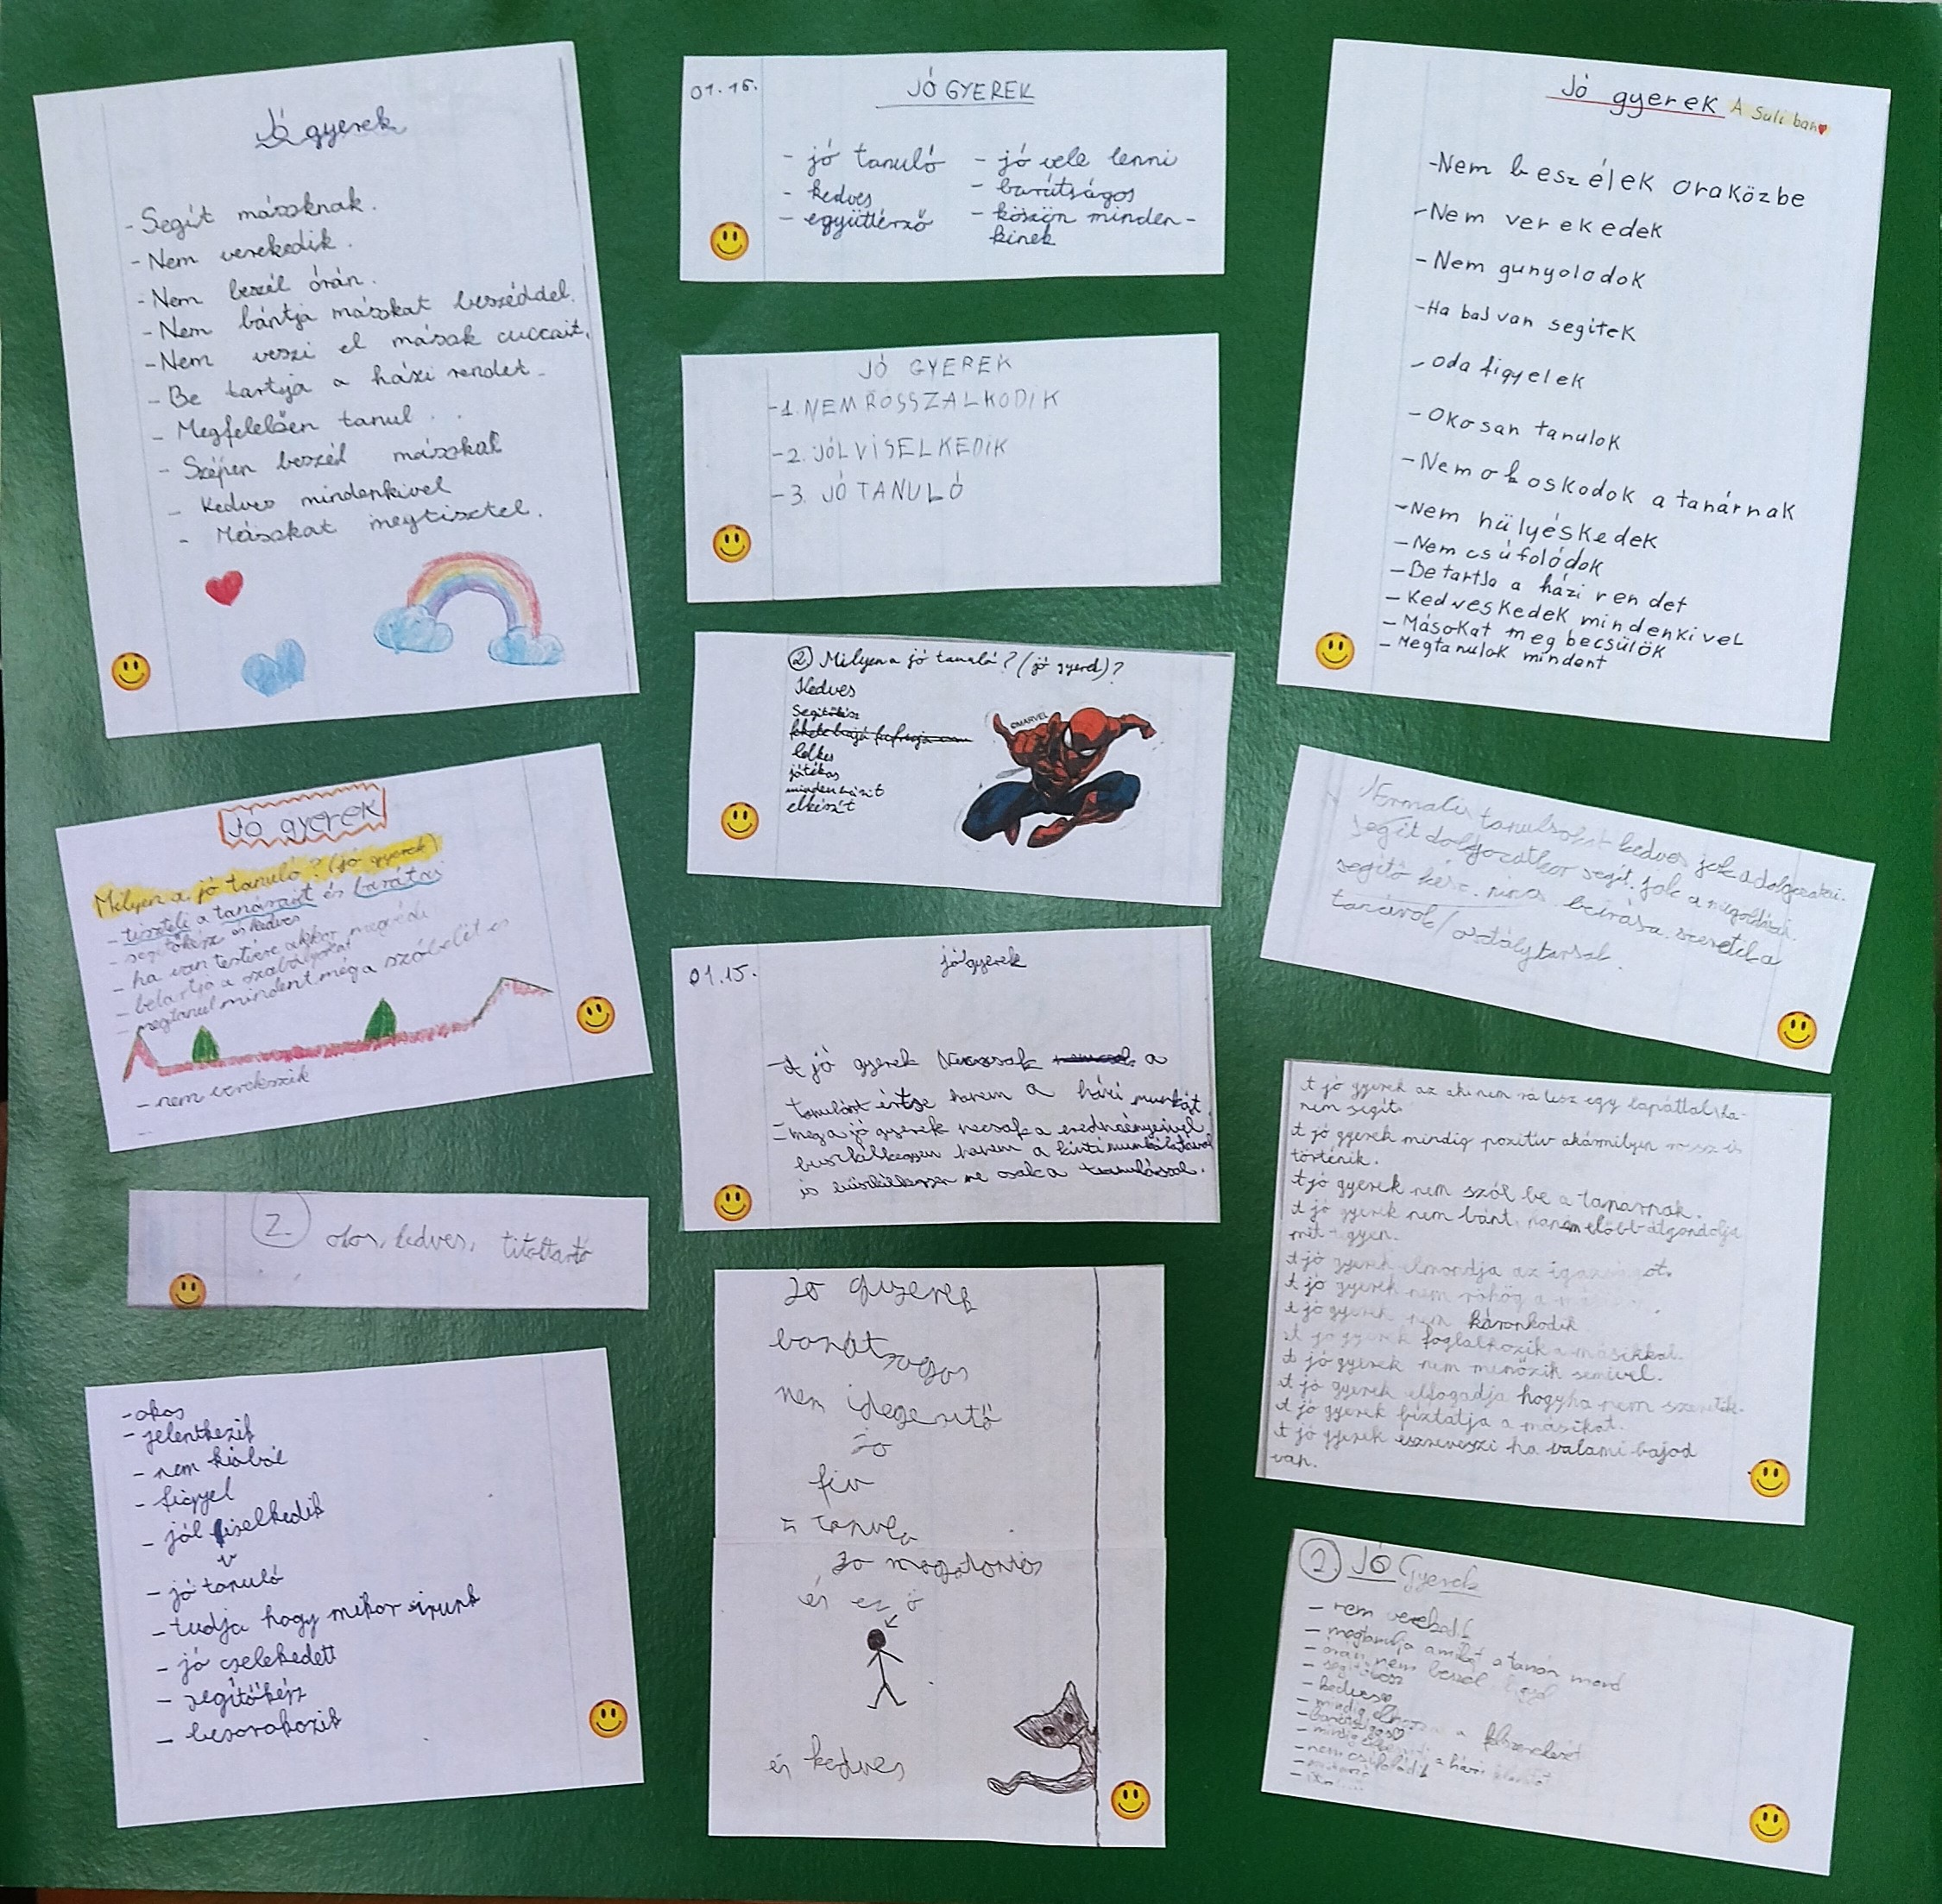 Jó gyerek
- Segít másoknak.
- Nem verekedik.
- Nem beszél órán.
- Nem bántja másokat beszéddel.
- Nem veszi el mások cuccait.
- Be tartja a házi rendet.
- Megfelelően tanul.
- Szépen beszél másokal
- Kedves mindenkivel
- Másokat megtisztel.
Jó gyerek
Milyen a jó tanuló? (jó gyerek)
- tiszteli a tanárait és barátai
- segítőkész és kedves
- ha van testvére akkor megvédi
- betartja a szabályokat
- megtanul mindent még a szóbelit is
- nem verekszik
2. okos, kedves, titoktartó
- okos
- jelentkezik
- nem kiabál
- figyel
- jól viselkedik
- jó tanuló
- tudja hogy mikor írunk
- jó cselekedett
- segítőkész
- besorakozik
01.15. JÓ GYEREK
- jó tanuló - jó vele lenni
- kedves - barátságos
- együttérző - köszön minden-
kinek
JÓ GYEREK
-1. NEM ROSSZALKODIK
-2. JÓL VISELKEDIK
-3. JÓ TANULÓ
2. Milyen a jó tanuló? (jó gyerek)?
Kedves
Segítőkész
lelkes
játékos
minden házit
elkészít
©MARVEL
01.15. jó gyerek
- A jó gyerek Nemcsak a
tanulást értse hanem a házi munkát
- meg a jó gyerek necsak a eredményeivel
büszkélkegyen hanem a kinti munkálataival
is büszkélkegyen ne csak a tanulással.
Jo gyerek
baratsagos
nem idegesitő
jo
fiu
tanulo
Jo magatartás
és ez ő
és kedves
Jó gyerek A Suliban
- Nem beszélek oraközbe
- Nem verekedek
- Nem gunyolodok
- Ha baj van segítek
- Oda figyelek
- Okosan tanulok
- Nem okoskodok a tanárnak
- Nem hülyéskedek
- Nem csúfolódok
- Betartja a házi rendet
- Kedveskedek mindenkivel
- Másokat meg becsülök
- Megtanulok mindent
Normális kedves jók a dolgozatai.
segít dolgozatkor segít. jók a megoldásai.
segítő kész. nincs beírása. szeretik a
tanárok/osztálytársak.
A jó gyerek az aki nem rá lesz egy lapáttal, ha-
nem segít.
A jó gyerek mindig pozitív akármilyen rossz is
történik.
A jó gyerek nem szól be a tanárnak.
A jó gyerek nem bánt, hanem előbb átgondolja
mit tegyen.
A jó gyerek elmondja az igazságot.
A jó gyerek nem röhög a
A jó gyerek nem káromkodik
A jó gyerek foglalkozik a másikkal.
A jó gyerek nem menőzik semivel.
A jó gyerek elfogadja hogyha nem szeretik.
A jó gyerek bíztatja a másikat.
A jó gyerek észreveszi ha valami bajod
van.
2. JÓ Gyerek
- nem verekedik
- megtanulja amiket a tanár mond
- órán nem beszél
- segítőkész
- kedves
- mindig a felszerelését
- barátságos
- mindig a házi
- nem csúfolódik